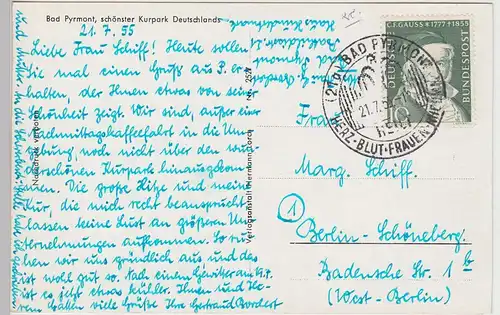 Bad Pyrmont, schönster Kurpark Deutschlands
21.7.55
Liebe Frau Schiff! Heute sollen
Sie mal einen Gruß aus P. er-
halten, der Ihnen etwas von seiner
Schönheit zeigt. Wir sind, außer einer
Nachmittagskaffeefahrt in die Um-
gebung, noch nicht über den wun-
derschönen Kurpark hinausgekom-
men. Die große Hitze und mein
Kur, die mich recht beansprucht
lassen keine Lust an größeren Un-
ternehmungen aufkommen. So ru-
hen wir uns gründlich aus, und das
ist wohl gut so. Nach einem Gewitter am
ist es jetzt etwas kühler. Ihnen und Ih-
rem Gatten viele Grüße Ihre Gertraud
Nachdruck verboten
Verlagsanstalt Hermann Lorch
Nr. 2527
C.F. GAUSS * 1777 † 1855
DEUTSCHE BUNDESPOST
10
(21a) BAD PYRMONT
21.7.55
HERZ-BLUT-FRAUEN
Frau
Marg. Schiff
1
Berlin-Schöneberg
Badensche Str. 1 b
(West-Berlin)